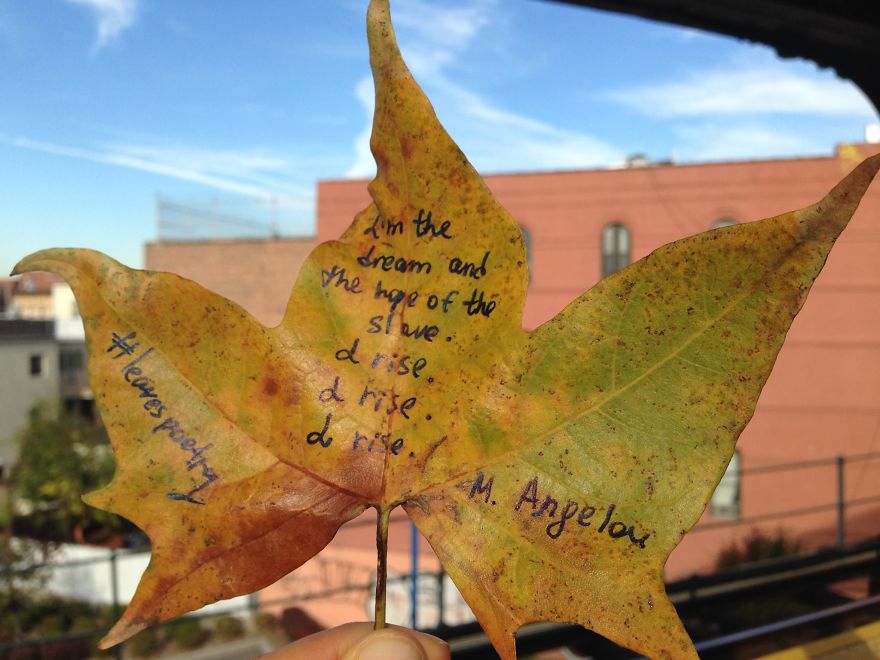 I'm the
dream and
the hope of the
slave.
I rise.
I rise.
I rise.
#leavespoetry
M. Angelou